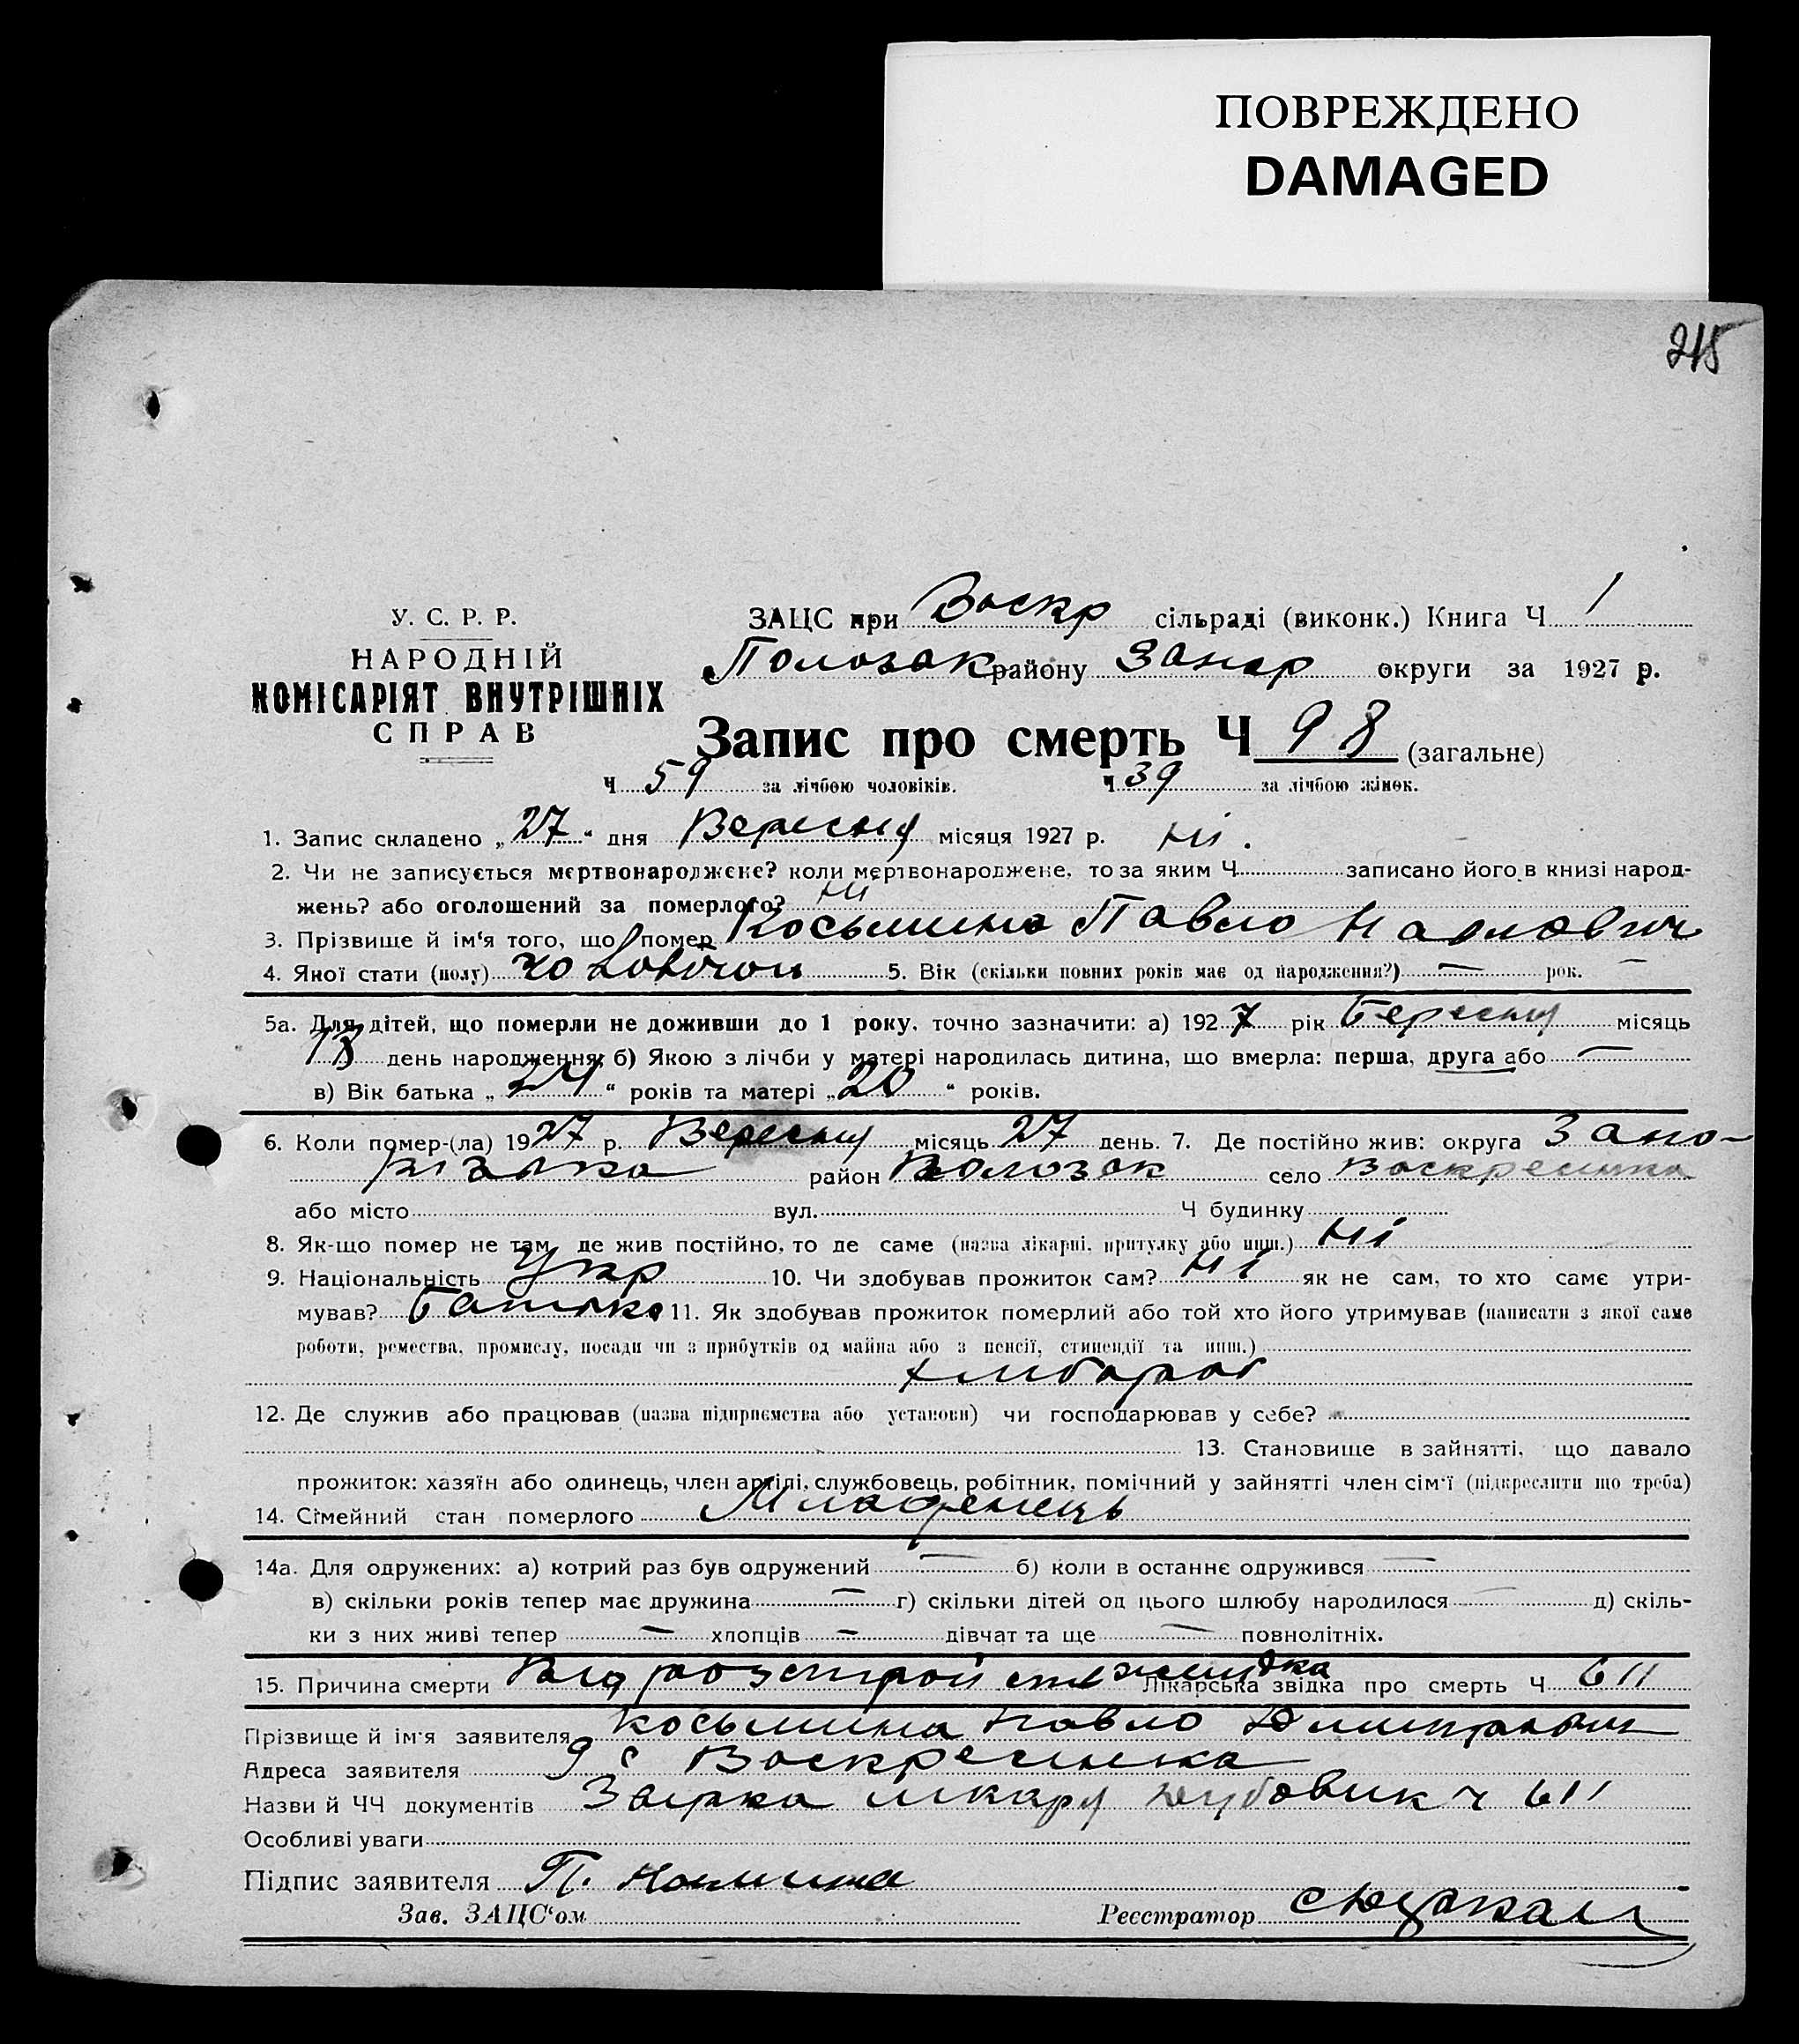 ПОВРЕЖДЕНО
DAMAGED
215
У. С. Р. Р.
НАРОДНІЙ
КОМІСАРІЯТ ВНУТРІШНІХ
СПРАВ
ЗАЦС при Воскр сільраді (виконк.) Книга Ч 1
Полозак району Запор округи за 1927 р.
Запис про смерть Ч 98 (загальне)
Ч 59 за лічбою чоловіків. Ч 39 за лічбою жінок.
1. Запис складено „27“ дня Вересня місяця 1927 р. Ні.
2. Чи не записується мертвонароджене? коли мертвонароджене, то за яким Ч записано його в книзі народ-
жень? або оголошений за померлого? ні
3. Прізвище й ім'я того, що помер Косьмина Павло Павлович
4. Якої стати (полу) 5. Вік (скільки повних років має од народження?) — рок. —
5а. Для дітей, що померли не доживши до 1 року, точно зазначити: а) 1927 рік Вересня місяць
13 день народження; б) Якою з лічби у матері народилась дитина, що вмерла: перша, друга або —
в) Вік батька „24“ років та матері „20“ років.
6. Коли помер-(ла) 1927 р. Вересня місяць 27 день. 7. Де постійно жив: округа Запо-
різька район Полозак село Воскресинка
або місто вул. Ч будинку
8. Як-що помер не там, де жив постійно, то де саме (назва лікарні, притулку або инш.) Ні
9. Національність Укр 10. Чи здобував прожиток сам? Ні як не сам, то хто саме утри-
мував? Батько 11. Як здобував прожиток померлий або той хто його утримував (написати з якої саме
роботи, ремества, промислу, посади чи з прибутків од майна або з пенсії, стипендії та инш.)
хлібороб
12. Де служив або працював (назва підприємства або установи) чи господарював у себе?
13. Становище в зайнятті, що давало
прожиток: хазяїн або одинець, член артілі, службовець, робітник, помічний у зайнятті член сім'ї (підкреслити що треба)
14. Сімейний стан померлого Младенець
14а. Для одружених: а) котрий раз був одружений — б) коли в останнє одружився —
в) скільки років тепер має дружина — г) скільки дітей од цього шлюбу народилося — д) скіль-
ки з них живі тепер — хлопців — дівчат та ще — повнолітніх.
15. Причина смерти Від розстрой жлудка Лікарська звідка про смерть Ч 611
Прізвище й ім'я заявителя Косьмина Павло Дмитрович
Адреса заявителя с Воскресинка
Назви й ЧЧ документів лікаря Дубовик ч 611
Особливі уваги
Підпис заявителя П.
Зав. ЗАЦС'ом Реєстратор